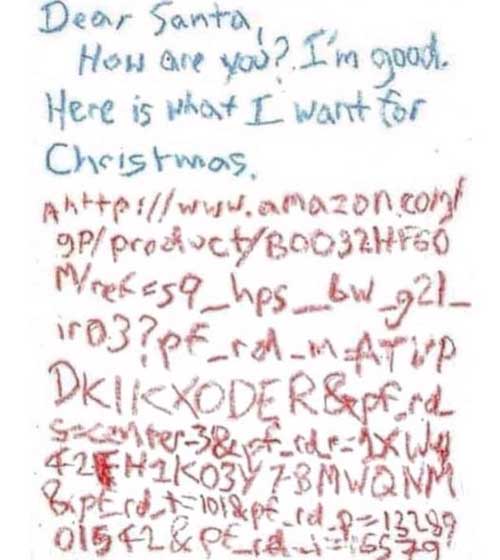 Dear Santa,
How are you? I'm good.
Here is what I want for
Christmas.
A http://www.amazon.com/
gp/product/B0032HF60
M/ref=s9_hps_bw_g21_
ir03?pf_rd_m=ATVP
DKIKX0DER&pf_rd_
s=center-3&pf_rd_r=1XW4
42FH1K03Y78MWQNM
&pf_rd_t=101&pf_rd_p=13289
01542&pf_rd_i=5579